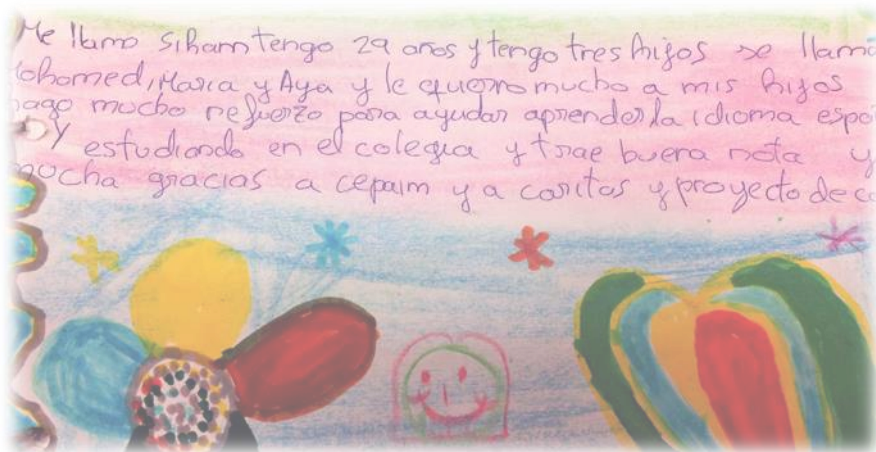 Me llamo Siham tengo 29 años y tengo tres hijos se llama
Mohamed, Maria y Aya y le querro mucho a mis hijos
hago mucho refuerzo para ayudar aprender la idioma espa
y estudiando en el colegia y trae buena nota y
mocha gracias a cepaim y a caritas y proyecto de c